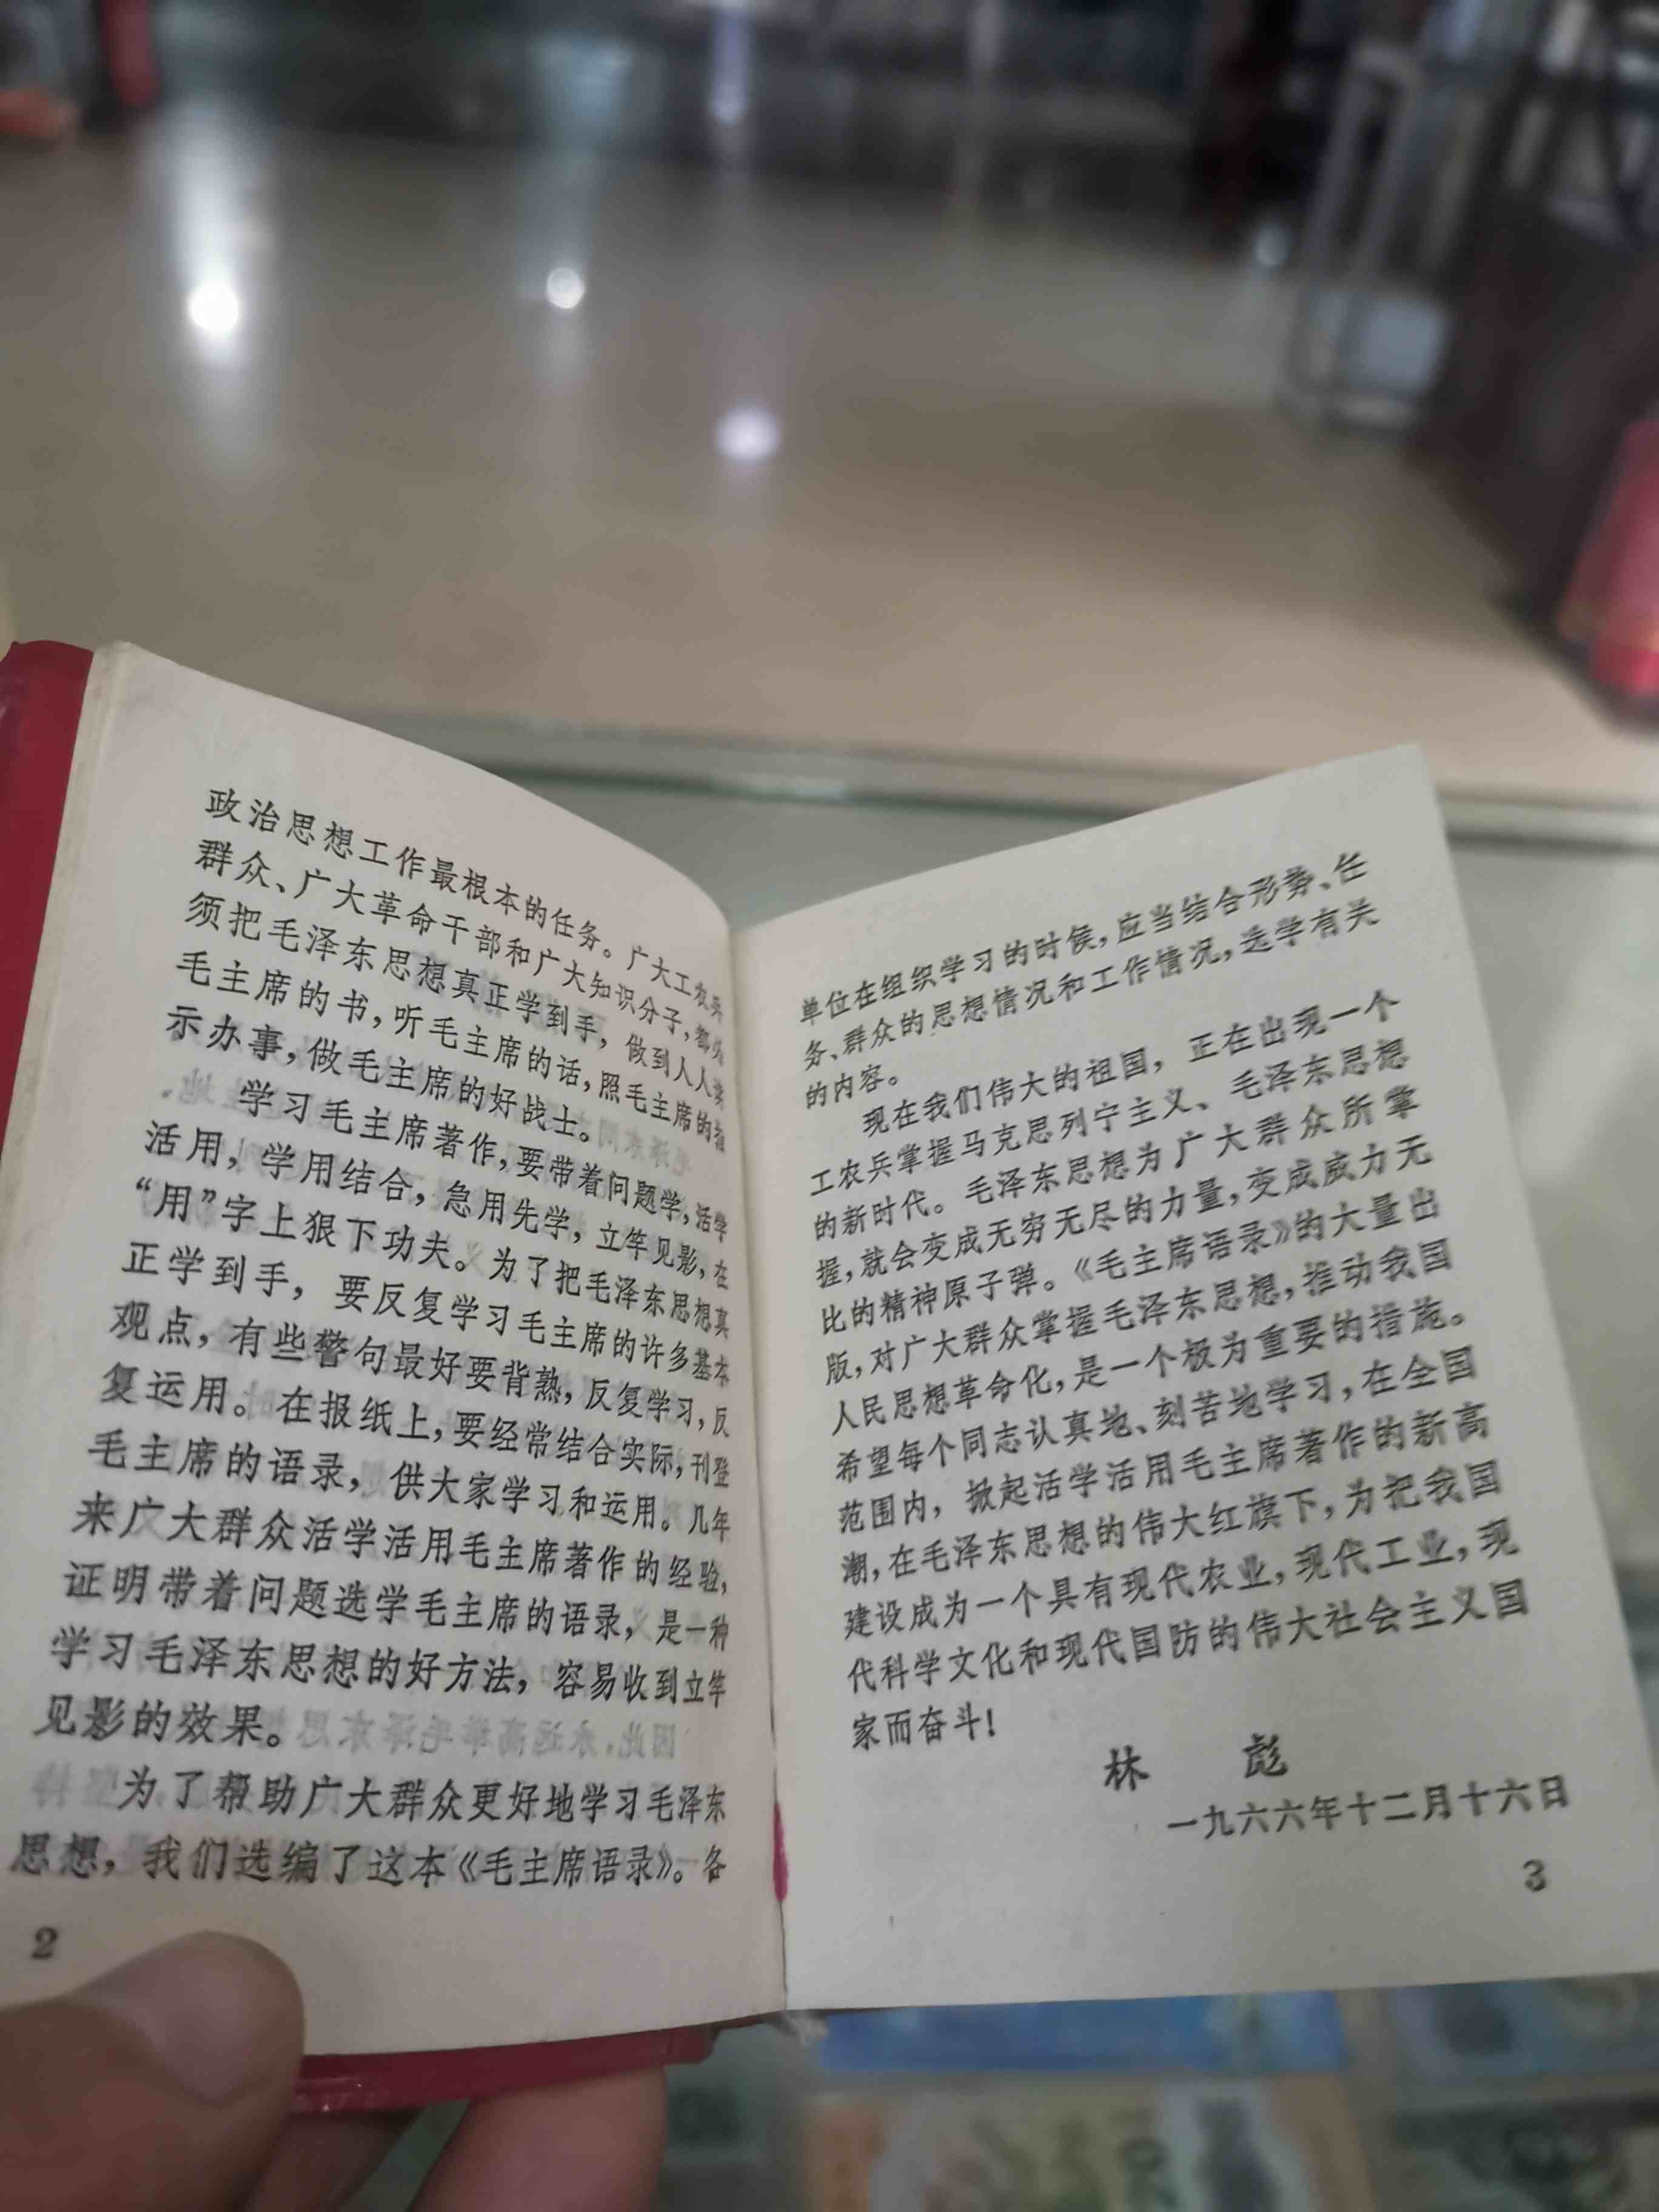 政治思想工作最根本的任务。广大工农兵
群众、广大革命干部和广大知识分子,都必
须把毛泽东思想真正学到手,做到人人读
毛主席的书,听毛主席的话,照毛主席的指
示办事,做毛主席的好战士。
学习毛主席著作,要带着问题学,活学
活用,学用结合,急用先学,立竿见影,在
“用”字上狠下功夫。为了把毛泽东思想真
正学到手,要反复学习毛主席的许多基本
观点,有些警句最好要背熟,反复学习,反
复运用。在报纸上,要经常结合实际,刊登
毛主席的语录,供大家学习和运用。几年
来广大群众活学活用毛主席著作的经验,
证明带着问题选学毛主席的语录,是一种
学习毛泽东思想的好方法,容易收到立竿
见影的效果。
为了帮助广大群众更好地学习毛泽东
思想,我们选编了这本《毛主席语录》。各
2
单位在组织学习的时候,应当结合形势、任
务、群众的思想情况和工作情况,选学有关
的内容。
现在我们伟大的祖国,正在出现一个
工农兵掌握马克思列宁主义、毛泽东思想
的新时代。毛泽东思想为广大群众所掌
握,就会变成无穷无尽的力量,变成威力无
比的精神原子弹。《毛主席语录》的大量出
版,对广大群众掌握毛泽东思想,推动我国
人民思想革命化,是一个极为重要的措施。
希望每个同志认真地、刻苦地学习,在全国
范围内,掀起活学活用毛主席著作的新高
潮,在毛泽东思想的伟大红旗下,为把我国
建设成为一个具有现代农业,现代工业,现
代科学文化和现代国防的伟大社会主义国
家而奋斗!
林 彪
一九六六年十二月十六日
3